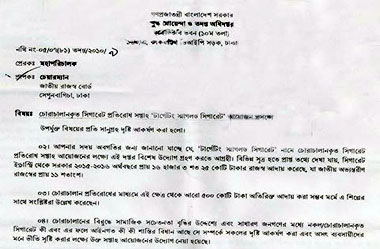 গণপ্রজাতন্ত্রী বাংলাদেশ সরকার
শুল্ক গোয়েন্দা ও তদন্ত অধিদপ্তর
ভবন (১০ম তলা)
ভিআইপি সড়ক, ঢাকা
নথি নং-
প্রেরকঃ মহাপরিচালক
প্রাপকঃ চেয়ারম্যান
জাতীয় রাজস্ব বোর্ড
সেগুনবাগিচা, ঢাকা
বিষয়ঃ চোরাচালানকৃত সিগারেট প্রতিরোধ সপ্তাহ "টার্গেটিং স্মাগলড সিগারেট" আয়োজন প্রসঙ্গে
উপর্যুক্ত বিষয়ের প্রতি সানুগ্রহ দৃষ্টি আকর্ষণ করা হলো।
০২। আপনার সদয় অবগতির জন্য জানানো যাচ্ছে যে, "টার্গেটিং স্মাগলড সিগারেট" নামে চোরাচালানকৃত সিগারেট
প্রতিরোধ সপ্তাহ আয়োজনের লক্ষ্যে এই দপ্তর বিশেষ উদ্যোগ গ্রহণ করতে আগ্রহী। বিভিন্ন সূত্র হতে প্রাপ্ত তথ্যে দেখা যায়, সিগারেট
ইন্ডাস্ট্রি থেকে সরকার ২০১৫-২০১৬ অর্থবছরে প্রায় ১৬ হাজার ৩ শত ২৫ কোটি টাকার রাজস্ব আদায় করেছে, যা জাতীয় অভ্যন্তরীণ
রাজস্বের প্রায় ১১ শতাংশ।
০৩। চোরাচালান প্রতিরোধের মাধ্যমে এই ক্ষেত্র থেকে আরো ৫০০ কোটি টাকা অতিরিক্ত আদায় করা সম্ভব মর্মে এ শিল্পের
সাথে সংশ্লিষ্টরা উল্লেখ করেছেন।
০৪। চোরাচালানের বিরুদ্ধে সামাজিক সচেতনতা বৃদ্ধির উদ্দেশ্যে এবং সাধারণ জনগণের মধ্যে নকল/চোরাচালানকৃত সিগারেট
কী এবং এর ফলে আইনগত কী কী শাস্তির বিধান আছে সে সম্পর্কে সকলের দৃষ্টি আকর্ষণ করা এবং অসৎ ব্যবসায়ীদের
মনে ভীতি সৃষ্টি করার লক্ষ্যে উক্ত সপ্তাহ আয়োজনের উদ্যোগ নেয়া হয়েছে।